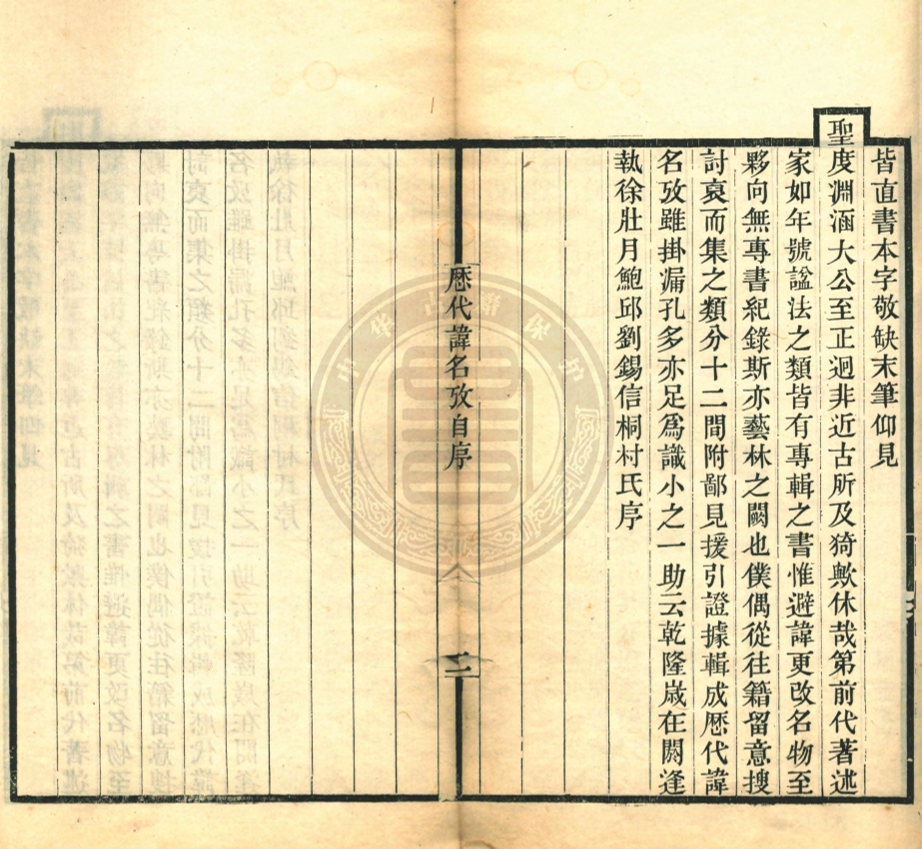 皆直書本字敬缺末筆仰見
聖度淵涵大公至正迥非近古所及猗歟休哉第前代著述
家如年號諡法之類皆有專輯之書惟避諱更改名物至
夥向無專書紀錄斯亦藝林之闕也僕偶從往籍留意搜
討裒而集之類分十二間附鄙見援引證據輯成歷代諱
名攷雖掛漏孔多亦足爲識小之一助云乾隆歲在閼逢
執徐壯月鮑邱劉錫信桐村氏序
歷代諱名攷自序
二